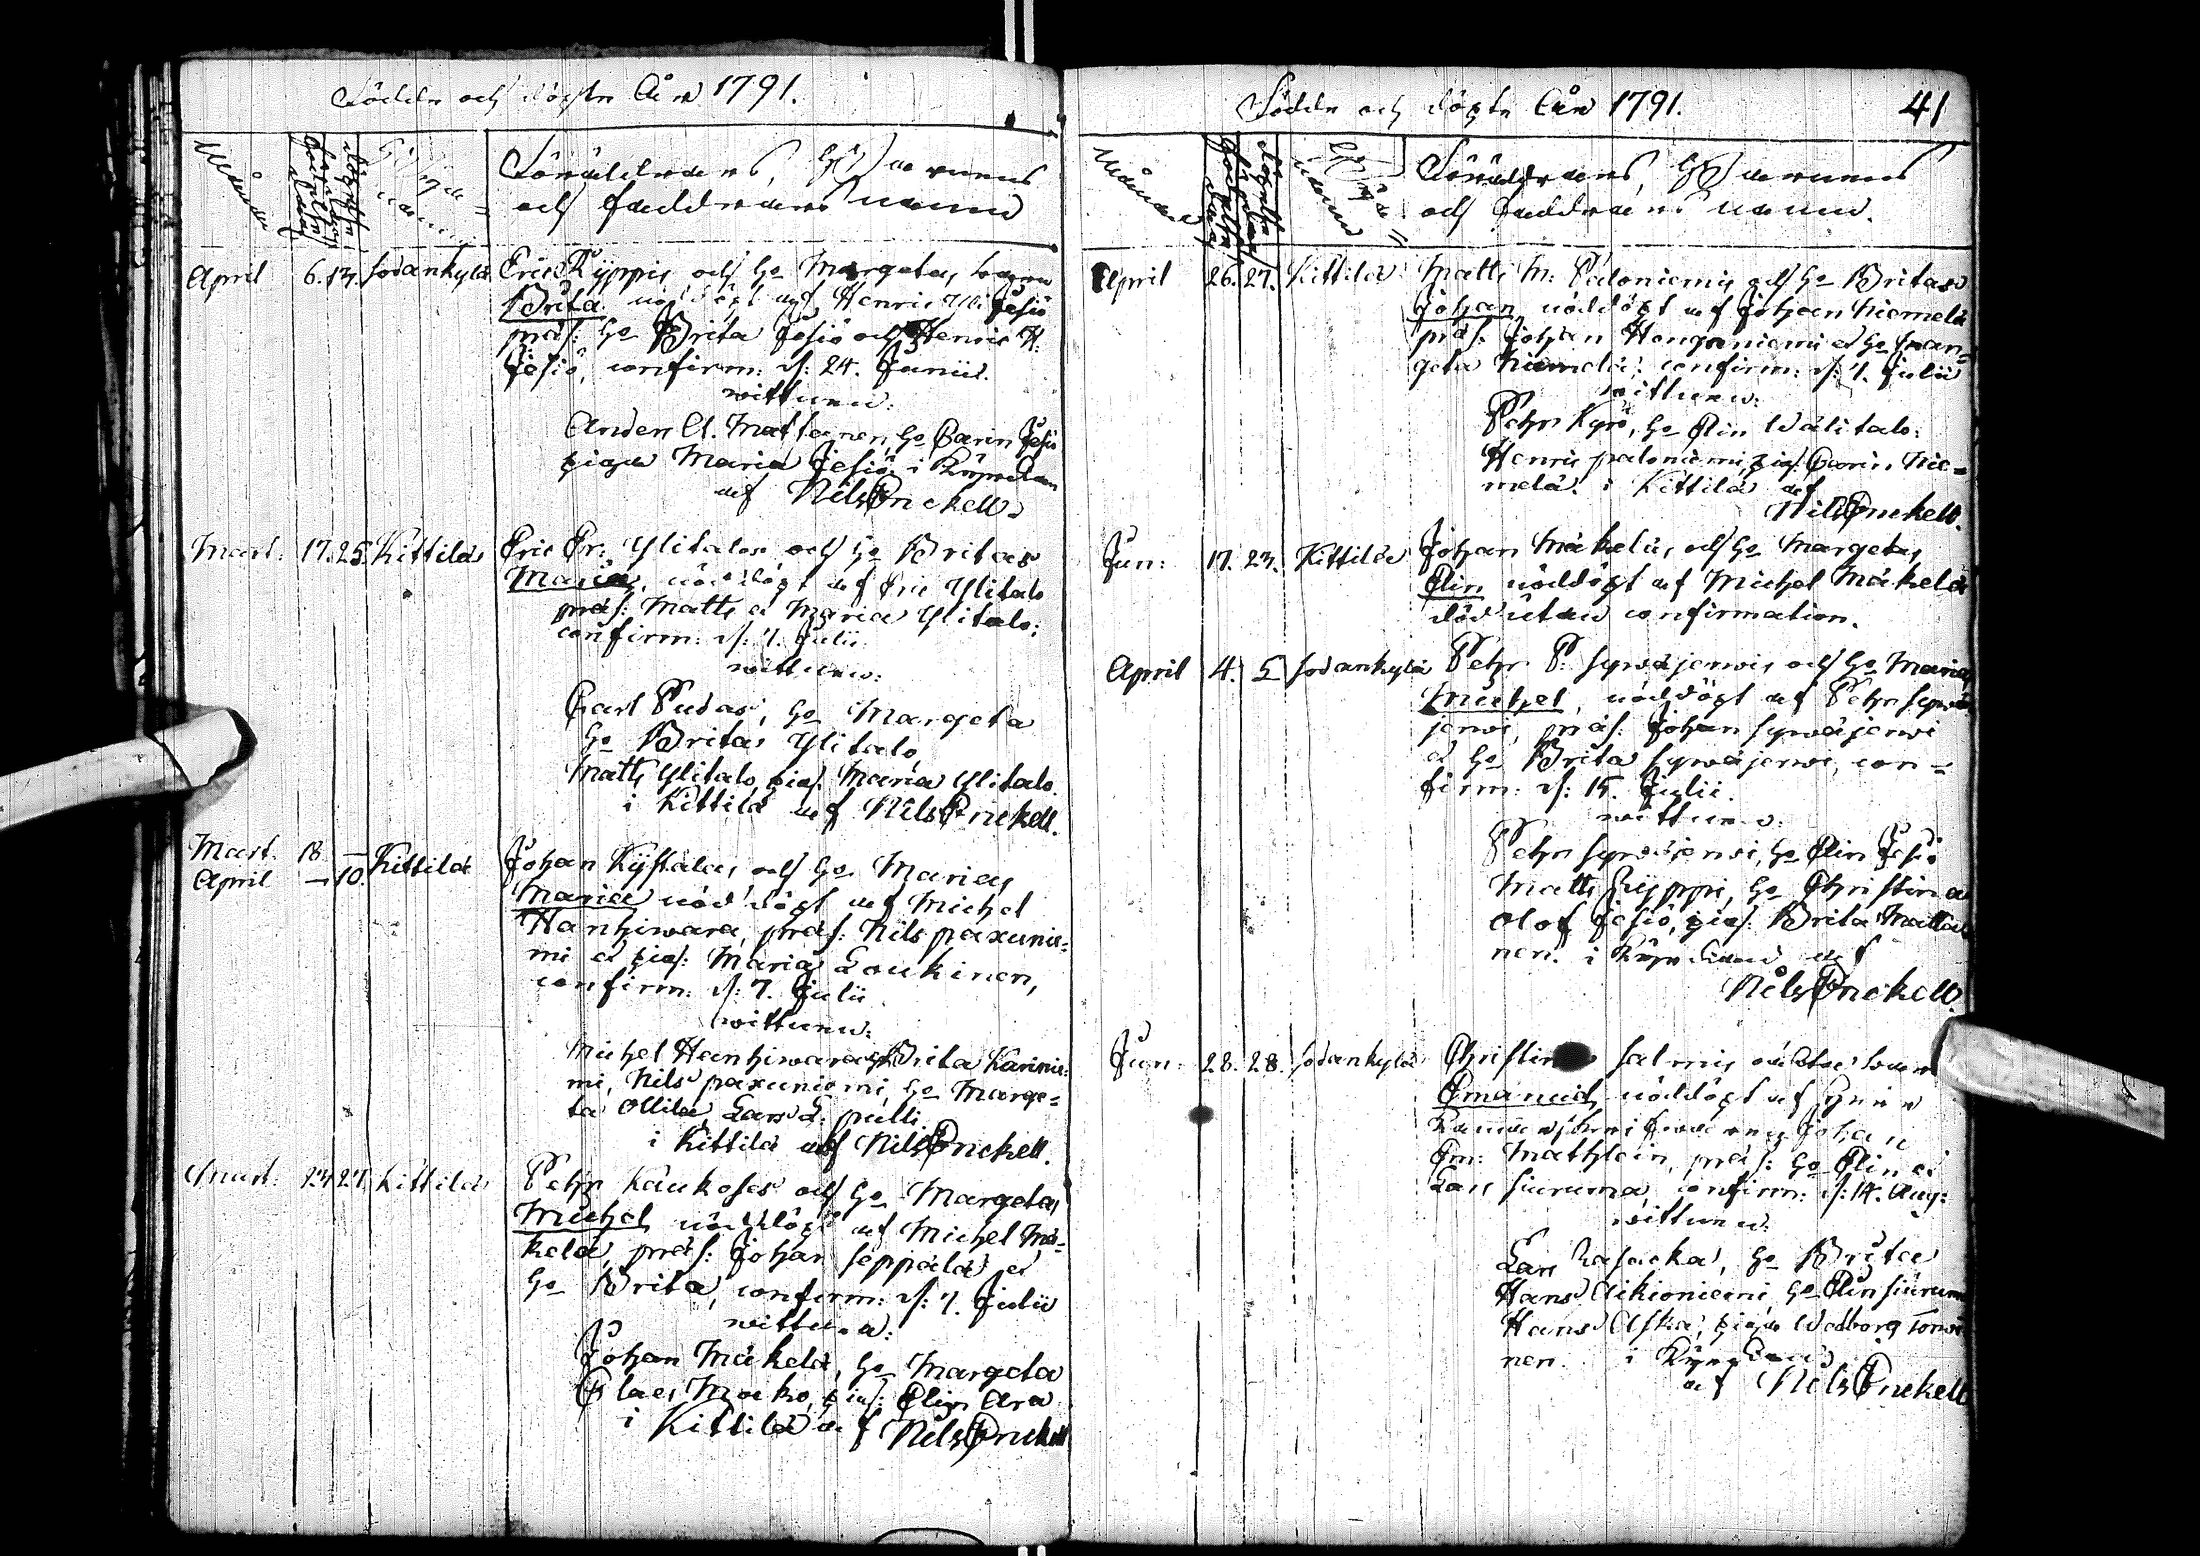 Födde och döpte År 1791.
Månad
Födelse dag
Döpelse dag
Socknens namn
Föräldrars, Barnens
och faddrars namn
April 6. 13. Sodankylä Eric Kyppis och h:o Margetas barn
Brita nöddöpt af Henric Jesiö
præs: h:o Brita Jesiö och Henric H:
Jesiö, confirm: d: 24. Junii.
wittnen:
Anders A. Mattanen, h:o Carin Jesiö
piga Maria Jesiö i Kyrckan
af Nils Enckell.
Mart: 17. 25. Kittilä Eric Er: Ylitalos och h:o Britas
Maria, nöddöpt af Eric Ylitalo
præs: Matts et Maria Ylitalo;
confirm: d: 7. Julii
wittnen:
Carl Pudas, h:o Margeta
h:o Brita Ylitalo,
Matts Ylitalo, pig: Maria Ylitalo.
i Kittilä af Nils Enckell.
Mart. 18 — Kittilä Johan Kystälas och h:o Marias
April — 10.
Maria nöddöpt af Michel
Hanhiwara, præs: Nils paxunie-
mi et pig: Maria Loukinen,
confirm: d: 7. Julii
wittnen:
Michel Hanhiwara, h:o Brita Karinie-
mi, Nils paxuniemi, h:o Marge-
ta Ollila, Lars L: pulli
i Kittilä af Nils Enckell.
Mart: 23. 27. Kittilä Pehr Kaukoses och h:o Margetas
Michel nöddöpt af Michel Mä-
kelä, præs: Johan Seppälä et
h:o Brita, confirm: d: 7. Julii
wittnen:
Johan Mäkelä, h:o Margeta
Claes Mocko, pig: Elin Ara
i Kittilä af Nils Enckell
Födde och döpte År 1791. 41
Månad
Födelse dag
Döpelse dag
Socknens namn
Föräldrars, Barnens
och faddrars namn.
April 26. 27. Kittilä Matts M: Paloniemis och h:o Britas
Johan nöddöpt af Johan Niemelä
præs: Johan Hengoniemi et h:o Mar-
geta Niemelä; confirm: d: 7. Julii
wittnen:
Pehr Kyrö, h:o Elin Wälitalo:
Henric paloniemi, pig: Carin Nie-
melä: i Kittilä af
Nils Enckell.
Jun: 17. 23. Kittilä Johan Mäkeläs, och h:o Margetas
Elin nöddöpt af Michel Mäkelä
död utan confirmation.
April 4. 5 Sodankylä Pehr P: Sywäjerwis och h:o Marias
Michel, nöddöpt af Pehr Sywä-
jerwi, præs: Johan Sywäjerwi
et h:o Brita Sywäjerwi, con-
firm: d: 15. Julii.
wittnen:
Pehr Sywäjerwi, h:o Elin Jesiö
Matts Kyppi, h:o Christina
Olof Jesiö, pig: Brita Matta-
nen. i Kyrckan af
Nils Enckell.
Jun: 28. 28. Sodankylä Salmis oäkta barn
Emanuel, nöddöpt af
Johan
Em: Mathlein, præs: h:o Elin et
Lars Siuruma, confirm: d: 14. Aug:
wittnen:
Lars, h:o Brita
Hans Aikioniemi h:o Elin Siurum
Hans Aska, piga Walborg Torwi
nen. i Kyrckan
af Nils Enckell